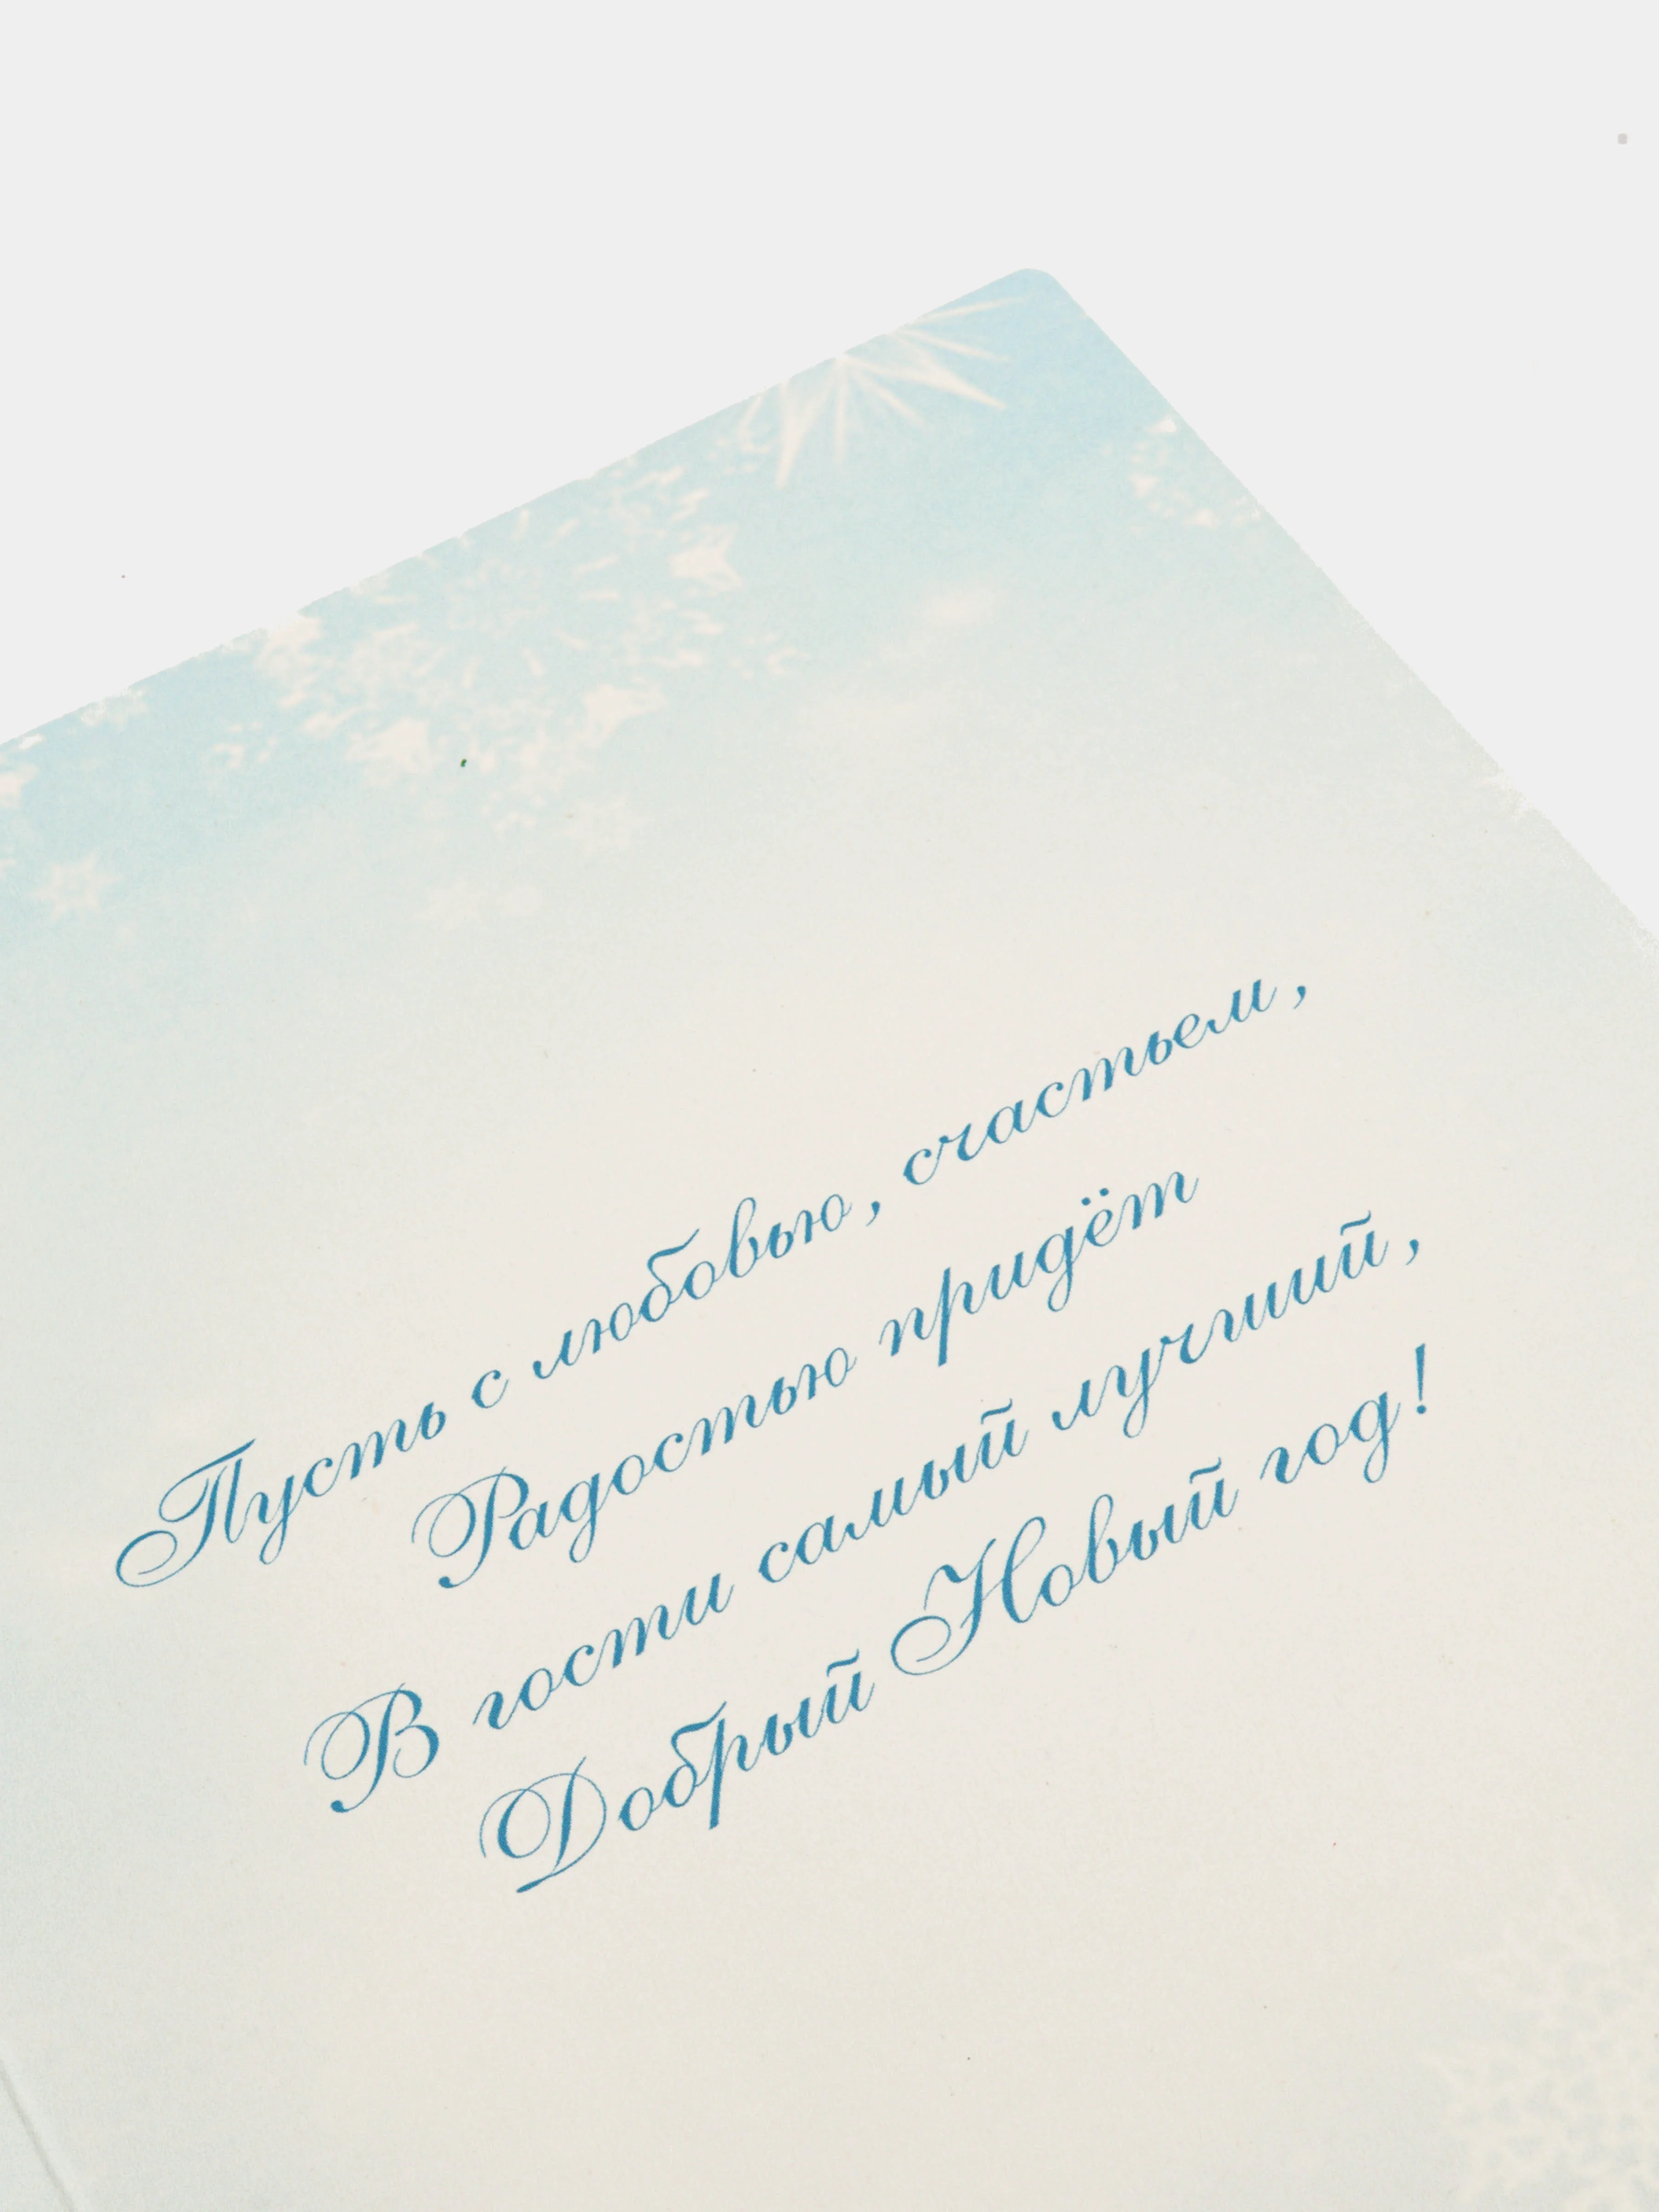 Пусть с любовью, счастьем,
Радостью придёт
В гости самый лучший,
Добрый Новый год!